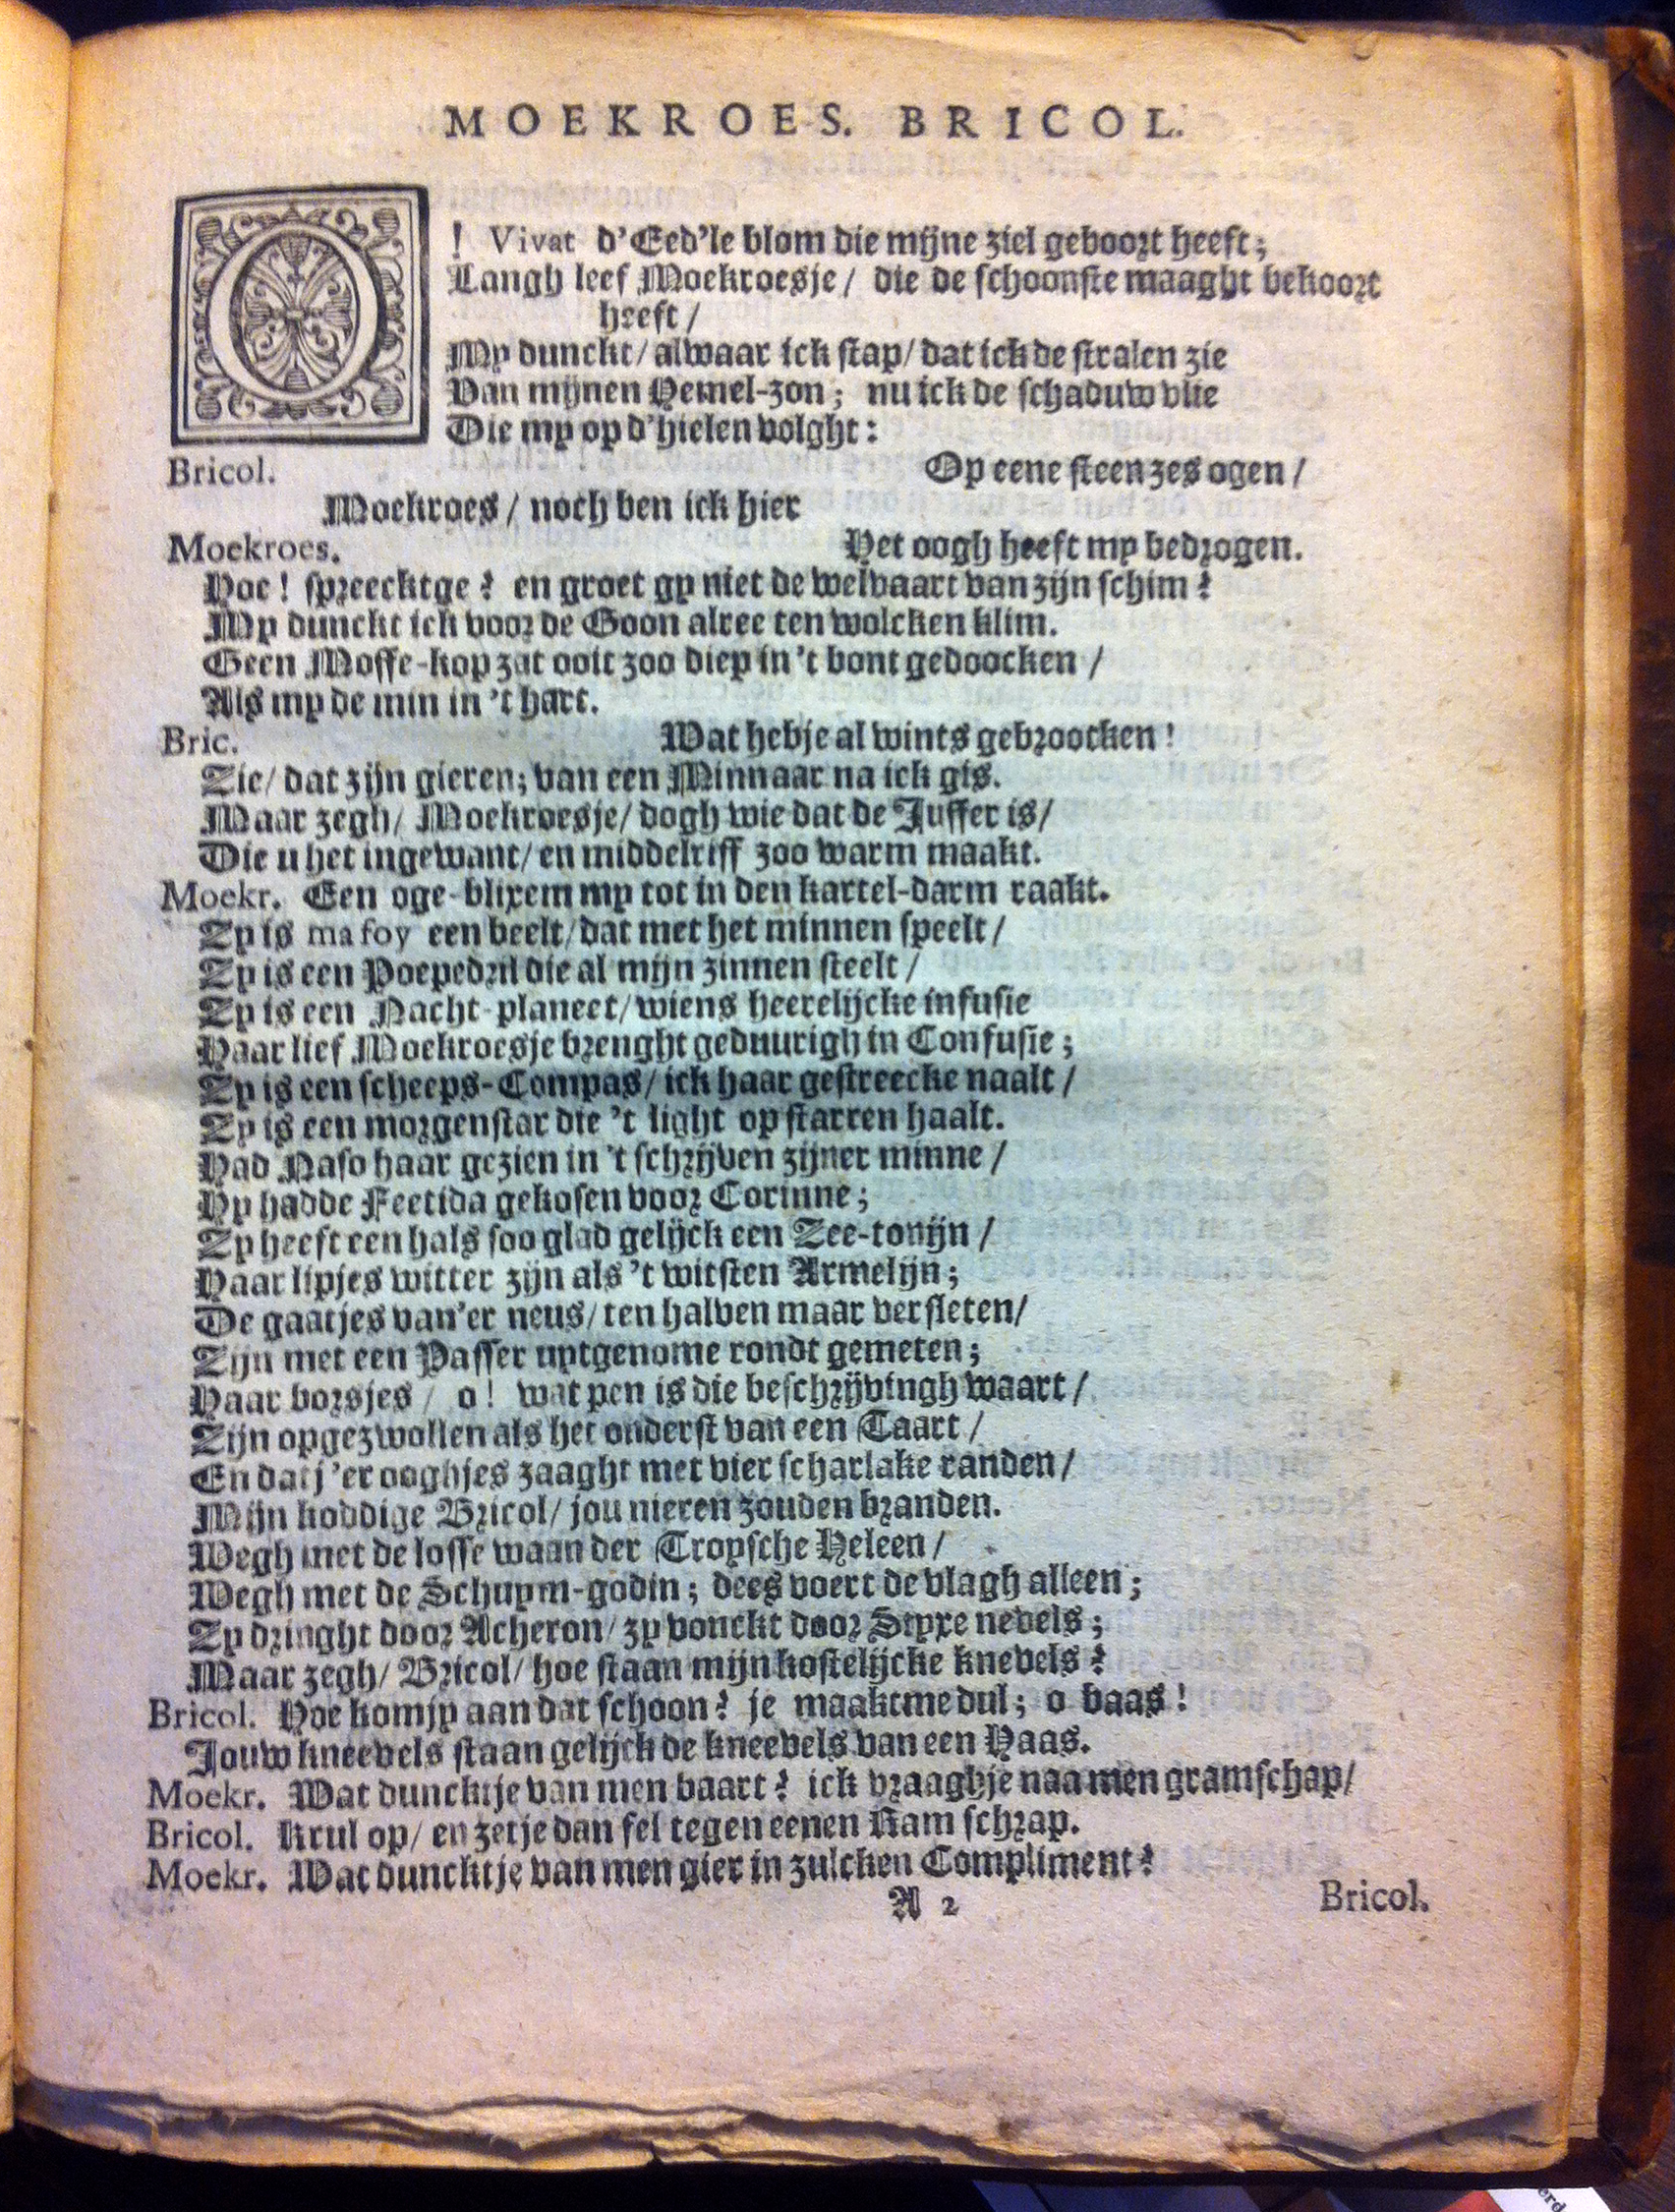 MOEKROES. BRICOL.
O! Vivat d'Eed'le blom die mijne ziel geboort heeft;
Langh leef Moekroesje / die de schoonste maaght bekoort
heeft /
My dunckt / alwaar ick stap / dat ick de stralen zie
Van mijnen Hemel-zon; nu ick de schaduw vlie
Die my op d'hielen volght:
Bricol. Op eene steen zes ogen /
Moekroes / noch ben ick hier
Moekroes. Het oogh heeft my bedrogen.
Hoe! spreecktge? en groet gy niet de welvaart van zijn schim?
My dunckt ick voor de Goon alree ten wolcken klim.
Geen Moffe-kop zat ooit zoo diep in 't bont gedoocken /
Als my de min in 't hart.
Bric. Wat hebje al wints gebroocken!
Zie / dat zijn gieren; van een Minnaar na ick gis.
Maar zegh / Moekroesje / dogh wie dat de Juffer is /
Die u het ingewant / en middelriff zoo warm maakt.
Moekr. Een oge-blixem my tot in den kartel-darm raakt.
Zy is ma foy een beelt / dat met het minnen speelt /
Zy is een Poepedril die al mijn zinnen steelt /
Zy is een Nacht-planeet / wiens heerelijcke infusie
Haar lief Moekroesje brenght geduurigh in Confusie;
Zy is een scheeps-Compas / ick haar gestreecke naalt /
Zy is een morgenstar die 't light op starren haalt.
Had Naso haar gezien in 't schrijven zijner minne /
Hy hadde Feetida gekosen voor Corinne;
Zy heeft een hals soo glad gelijck een Zee-tonijn /
Haar lipjes witter zijn als 't witsten Armelijn;
De gaatjes van'er neus / ten halven maar versleten /
Zijn met een Passer uytgenome rondt gemeten;
Haar borsjes / o! wat pen is die beschrijvingh waart /
Zijn opgezwollen als het onderst van een Taart /
En dat j'er ooghjes zaaght met vier scharlake randen /
Mijn koddige Bricol / jou nieren zouden branden.
Wegh met de losse waan der Troysche Heleen /
Wegh met de Schuym-godin; dees voert de vlagh alleen;
Zy dringht door Acheron / zy vonckt door Styxe nevels;
Maar zegh / Bricol / hoe staan mijn kostelijcke knevels?
Bricol. Hoe komjy aan dat schoon? je maaktme dul; o baas!
Jouw kneevels staan gelijck de kneevels van een Haas.
Moekr. Wat duncktje van men baart? ick vraaghje naa men gramschap /
Bricol. Krul op / en zetje dan fel tegen eenen Ram schrap.
Moekr. Wat duncktje van men gier in zulcken Compliment?
A 2 Bricol.